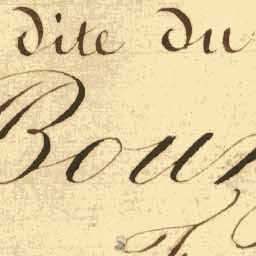 dite du
Bou